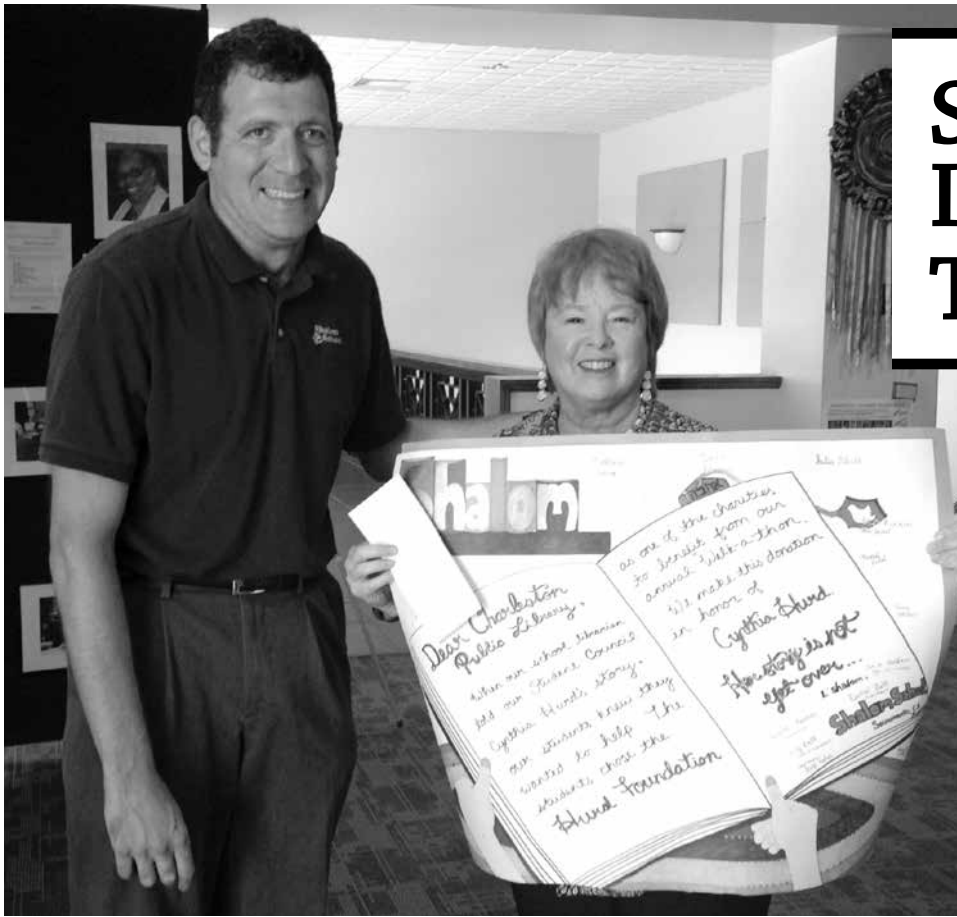 S
I
T
Shalom
School
shalom
Dear Charleston
Public Library,
When our school librarian
told our Student Council
Cynthia Hurd's story,
our students knew they
wanted to help. The
students chose the
Hurd Foundation
as one of the charities
to benefit from our
annual Walk-a-thon.
We make this donation
in honor of
Cynthia Hurd.
Her story is not
yet over...
L'shalom,
Shalom School
Sacramento, CA